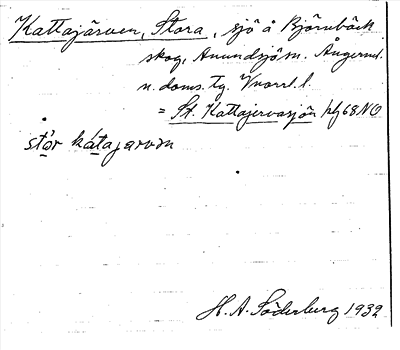 Kattajärven, Stora, sjö å Björnbäck
skog, Anundsjö sn. Ångerml.
n. doms. Tg. Vnorrl. l.
= St. Kattajervasjön hf 68 NO
stór kátajarvən
H. A. Söderberg 1932